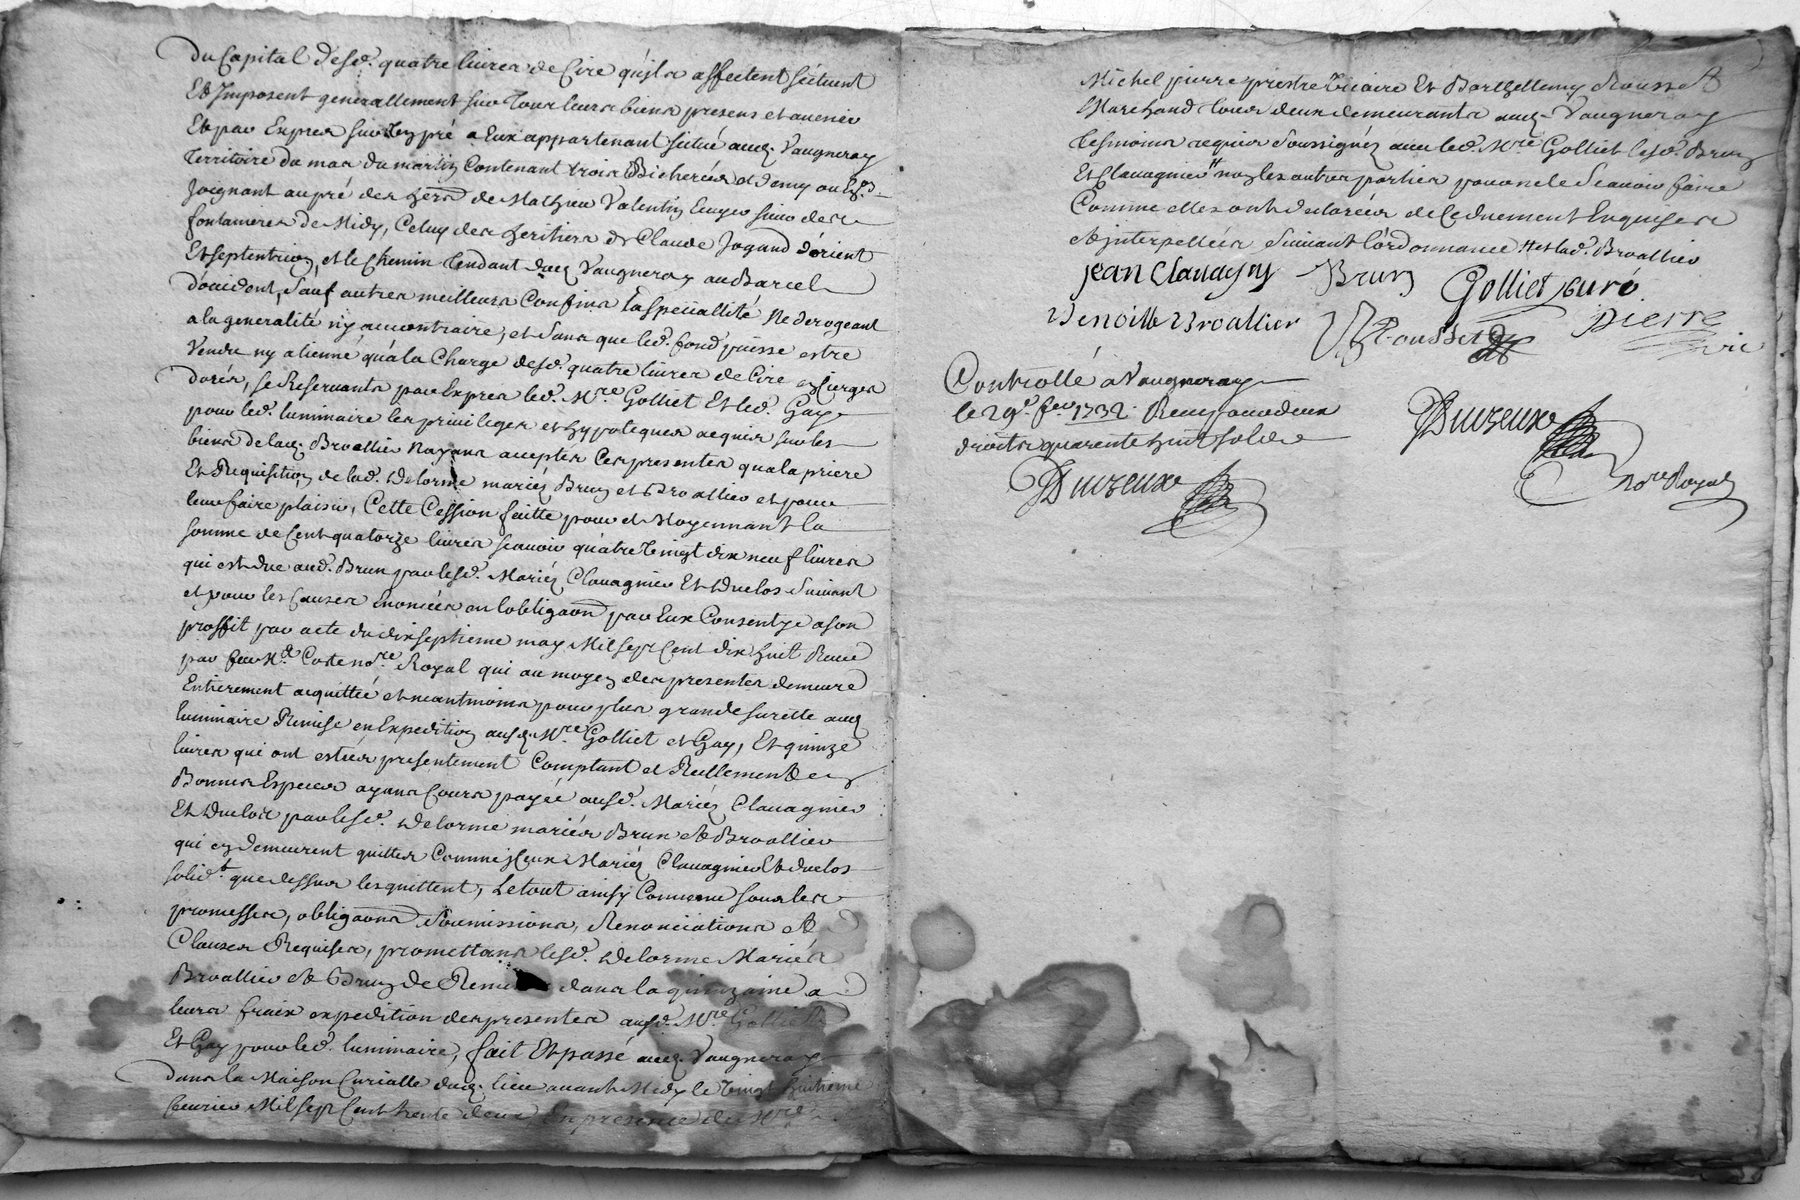 du Capital desd. quatre livres de Cire qu'ils affectent scituent
Et Imposent generallement sur tous leurs biens presens et avenir
Et par Expres sur un pré a Eux appartenant scitué aud. Vaugneray
territoire du mas du martin Contenant trois Bicherées et demy ou
Joignant au pré des hers de Mathieu Valentin
fontaneres de Midy, Celuy des heritiers de Claude Jogand d'orient
Et septentrion, et le Chemin tendant dud. Vaugneray au Barcel
d'occident, sauf autres meilleurs Confins la speciallité Ne derogeant
a la generalité n'y au contraire, et sans que led. fond puisse estre
Vendu ny alienné qu'a la Charge desd. quatre livres de Cire en Cierges
dorés, se Reservants par Expres led. Mre Golliet Et led. Gay
pour led. luminaire les privileges et hypoteques acquis sur les
biens de lad. Broallier Nayans accepter Ces presentes qua la priere
Et Requisition de lad. Delorme mariez Brun et Broallier et pour
leur faire plaisir, Cette Cession faitte pour et Moyennant la
somme de Cent quatorze livres scavoir quatre vingt dix neuf livres
qui est due aud. Brun par lesd. Mariez Clavagnier Et Duclos suivant
et pour les Causes Enoncées en l'obligaon par Eux Consentye a son
proffit par acte du dix septieme may Mil sept Cent dix huit Receu
par feu Me Coste nore Royal qui au moyen des presentes demeure
Entierement acquittée et neantmoins pour plus grande surette aud.
luminaire Remise en Expedition ausd. Mre Golliet et Gay, Et quinze
livres qui ont estées presentement Comptant et Reellement en
Bonnes Especes ayans Cours payée ausd. Mariez Clavagnier
Et Duclos par lesd. Delorme mariés Brun et Broallier
qui en demeurent quittes Comme iceux Mariez Clavagnier Et Duclos
solidt que dessus les quittent, Le tout ainsy Convenu sous les
promesses, obligaons soumissions, Renonciations Et
Clauses Requises, promettans lesd. Delorme Mariés
Broallier Et Brun de dans la quinzaine a
leurs fraix expedition des presentes ausd. Mre Golliet
Et Gay pour led. luminaire, fait Et passé aud. Vaugneray
dans la Maison Curialle dud. lieu avant Midy le vingt huitieme
fevrier Mil sept Cent trente deux En presence de Mre
Michel pierre prestre Vicaire Et Barthellemy Rousset
Marchand tous deux demeurants aud. Vaugneray
tesmoins requis soussignéz avec led. Mre Golliet lesd. Brun
Et Clavagnier # non les autres parties pour ne le scavoir faire
Comme elles ont declarées de Ce duement Enquises
et interpellées suivant l'ordonnance # et lad. Broallier
jean Clavagny Brun Golliet curé
Benoitte Broallier Rousset pierre
vic
Controllé a Vaugneray
le 29e fev 1732. Receu pour deux
droits quarente huit sols
Duvzeux
Duvzeux
nore Royal